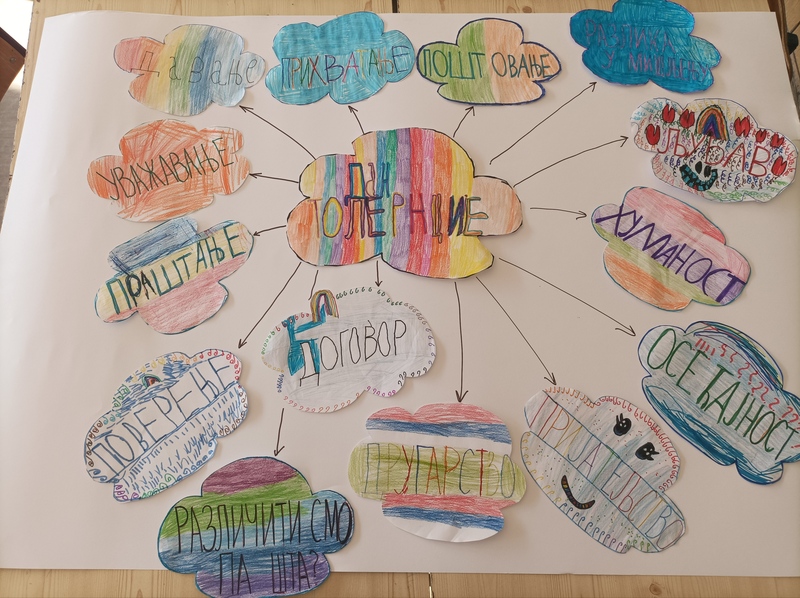 Давање
ПРИХВАТАЊЕ
ПОШТОВАЊЕ
РАЗЛИКА
У МИШЉЕЊУ
УВАЖАВАЊЕ
ДАН
ТОЛЕРНЦИЕ
ЉУБАВ
ПРАШТАЊЕ
ХУМАНОСТ
ДОГОВОР
ПОВЕРЕЊЕ
ОСЕЋАЈНОСТ
ДРУГАРСТВО
ПРИЈАТЕЉСТВО
РАЗЛИЧИТИ СМО
ПА ШТА?